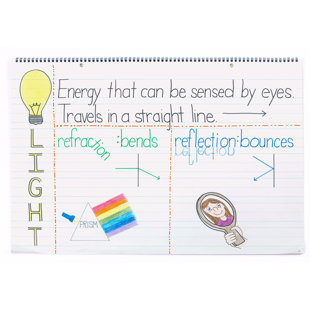 LIGHT
Energy that can be sensed by eyes.
Travels in a straight line.
refraction:bends
reflection:bounces
reflection
PRISM